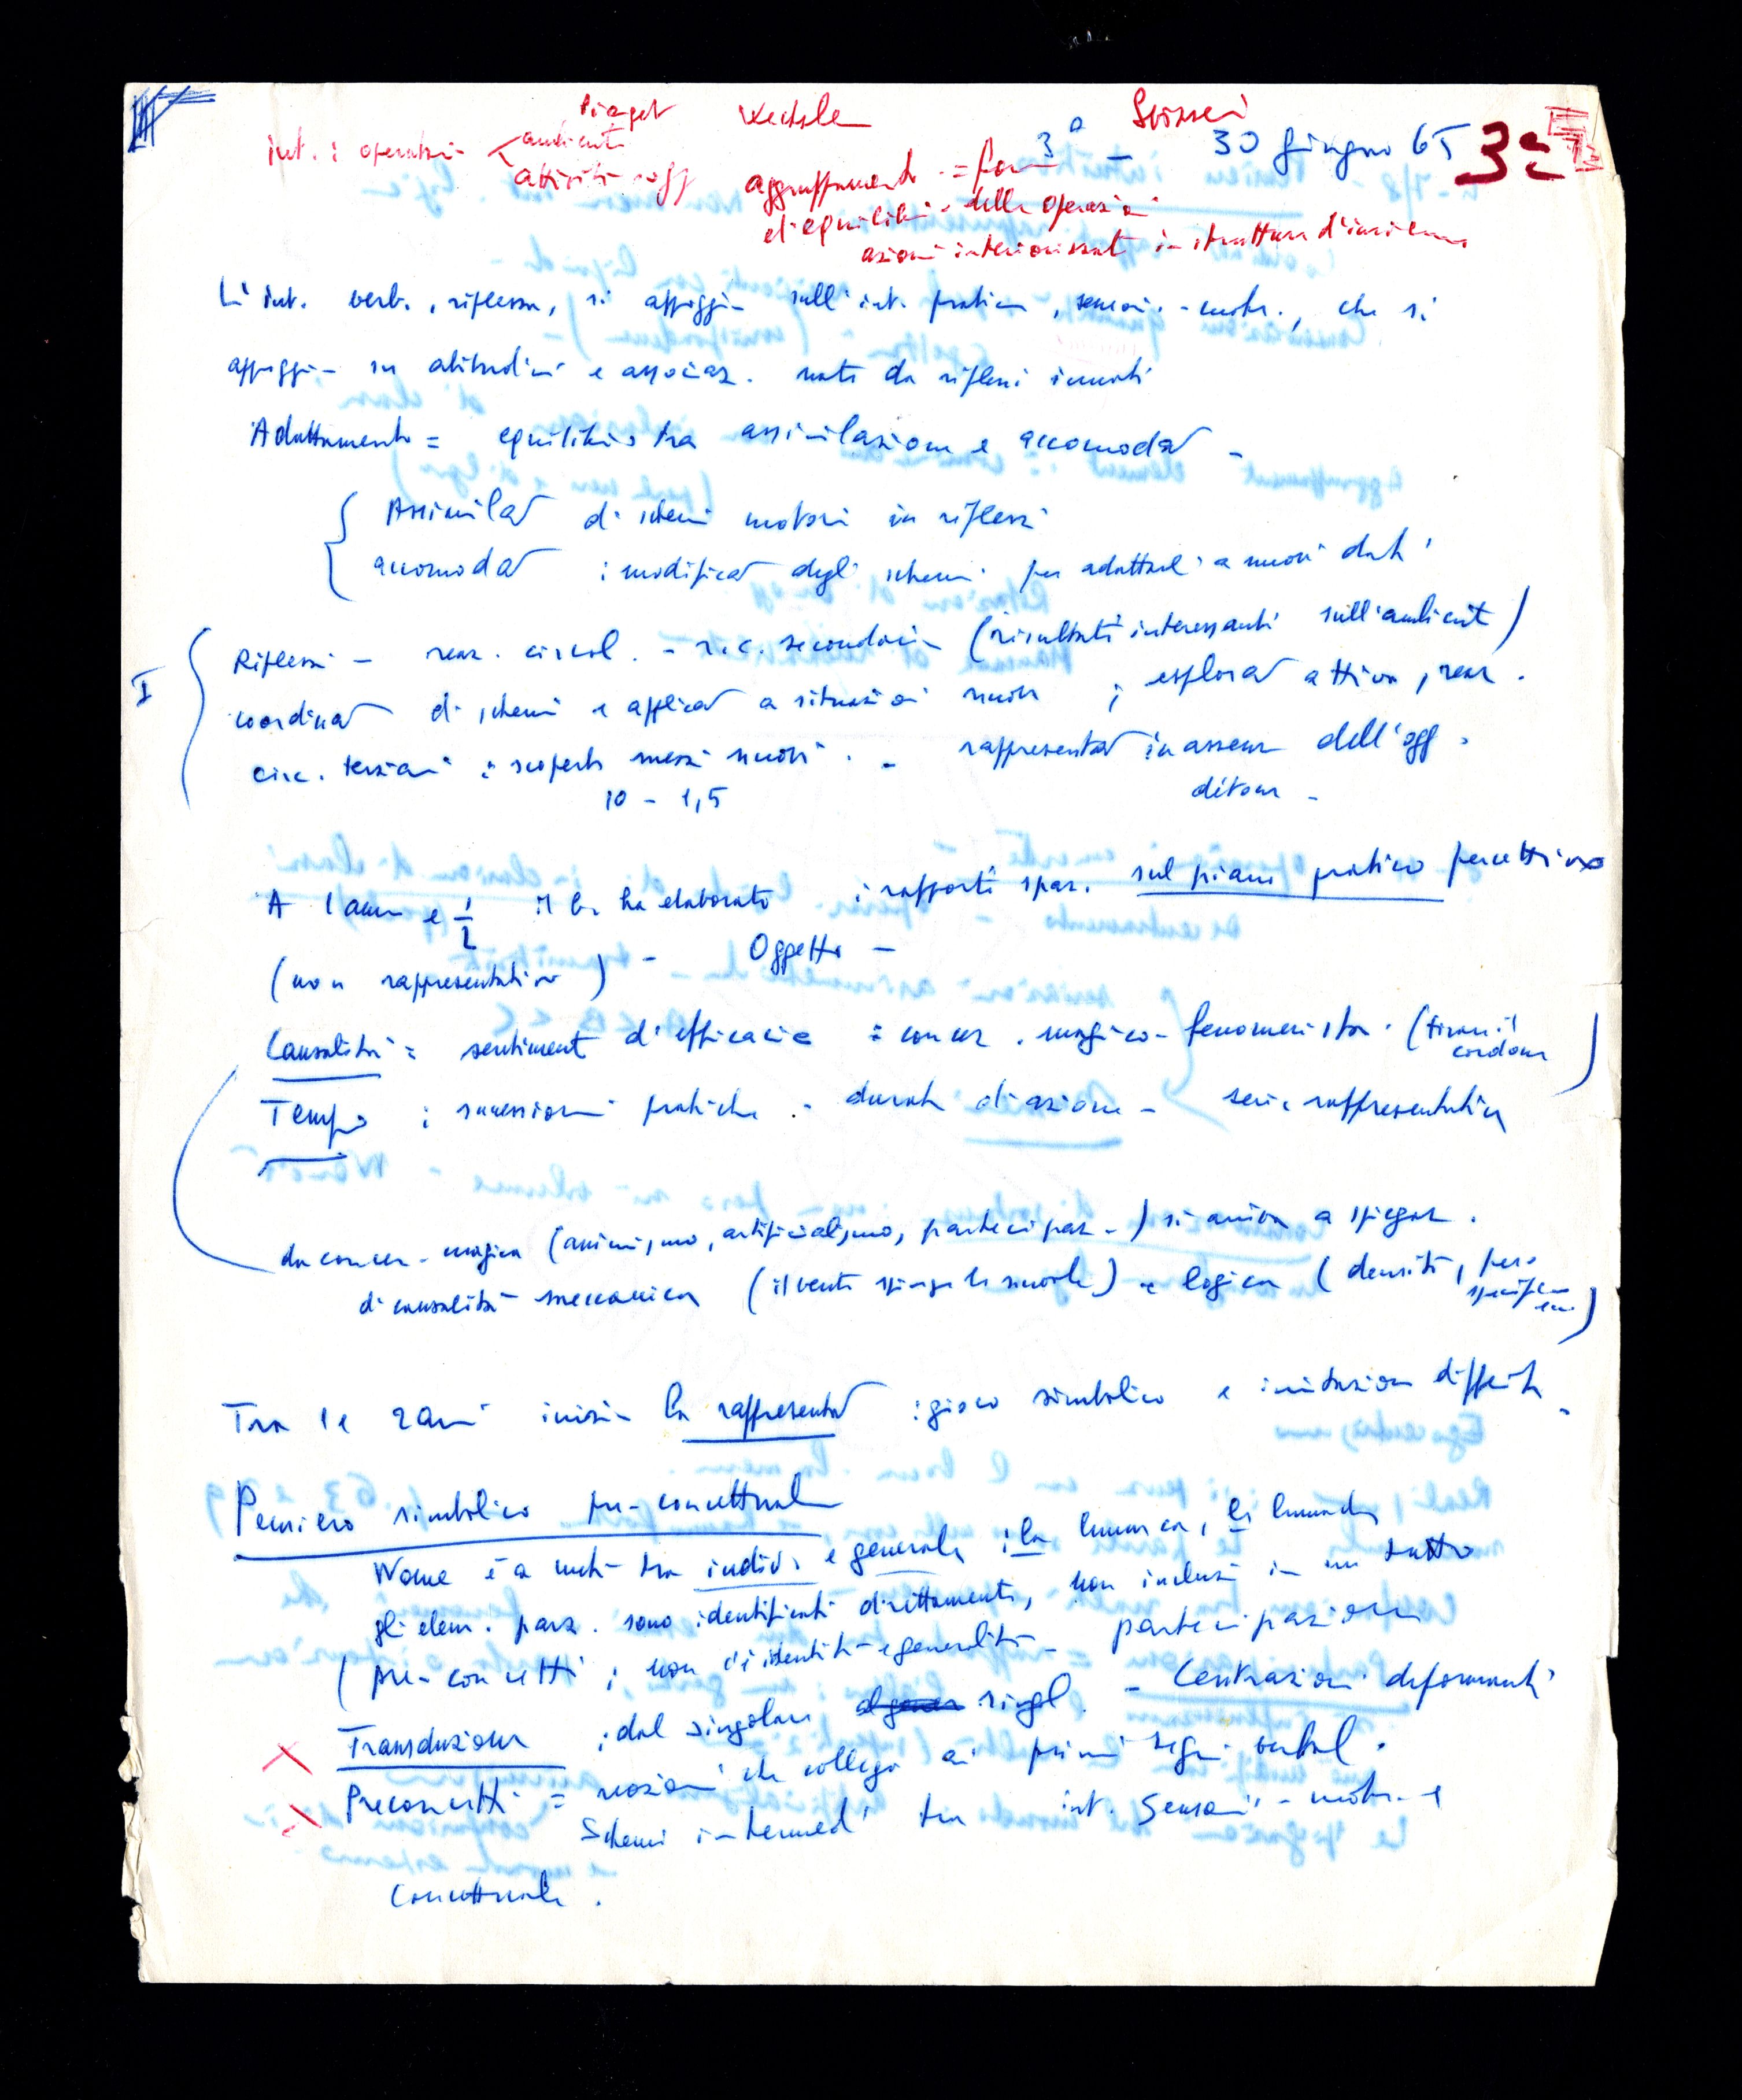 Piaget
int. : operatori ambiente
attività sogg
aggruppamento = forme
d'equilibrio delle operazioni
azioni interiorizzate in struttura d'insieme
3ª – 30 giugno 65 3ª
L'int. verb., riflessa, si appoggia sull'int. pratica, senso.-motr., che si
appoggia su abitudini e associaz. nate da riflessi innati
Adattamento = equilibrio tra assimilazione e accomodaz –
Assimilaz di schemi motori in riflessi
accomodaz : modificaz degli schemi per adattarli a nuovi dati
I
Riflessi – reaz. circol. – r.c. secondaria (risultati interessanti sull'ambiente)
coordinaz di schemi e applicaz a situazioni nuove ; esploraz attiva, reaz.
circ. terziari : scoperta mezzi nuovi . – rappresentaz in assenza dell'ogg.
10 – 1,5 détour –
A 1 anno e 1/2 il b. ha elaborato i rapporti spaz. sul piano pratico percettivo
(non rappresentativo) – Oggetto –
Causalità = sentiment d'efficacia : concez. magico-fenomenista. (tirare il cordone)
Tempo : successioni pratiche . durata di azione – serie rappresentativa
da concez. magica (animismo, artificialismo, partecipaz.) si arriva a spiegaz.
di causalità meccanica (il vento spinge le nuvole) e logica (densità, peso specifico ecc.)
Tra 1 e 2 anni inizia la rappresentaz : gioco simbolico e imitazione differita.
Pensiero simbolico pre-concettuale
Nome è a metà tra indiv. e generale : la lumaca, le lumache
gli elem. parz. sono identificati direttamente, non inclusi in un tutto
(pre-concetti : non c'è identità e generalità – partecipazione
Transduzione : dal singolare singol. – Centrazioni deformanti
Preconcetti = nozioni che collega ai primi segni verbal.
Schemi intermed' tra int. Senso-motr. e
Concettuale.